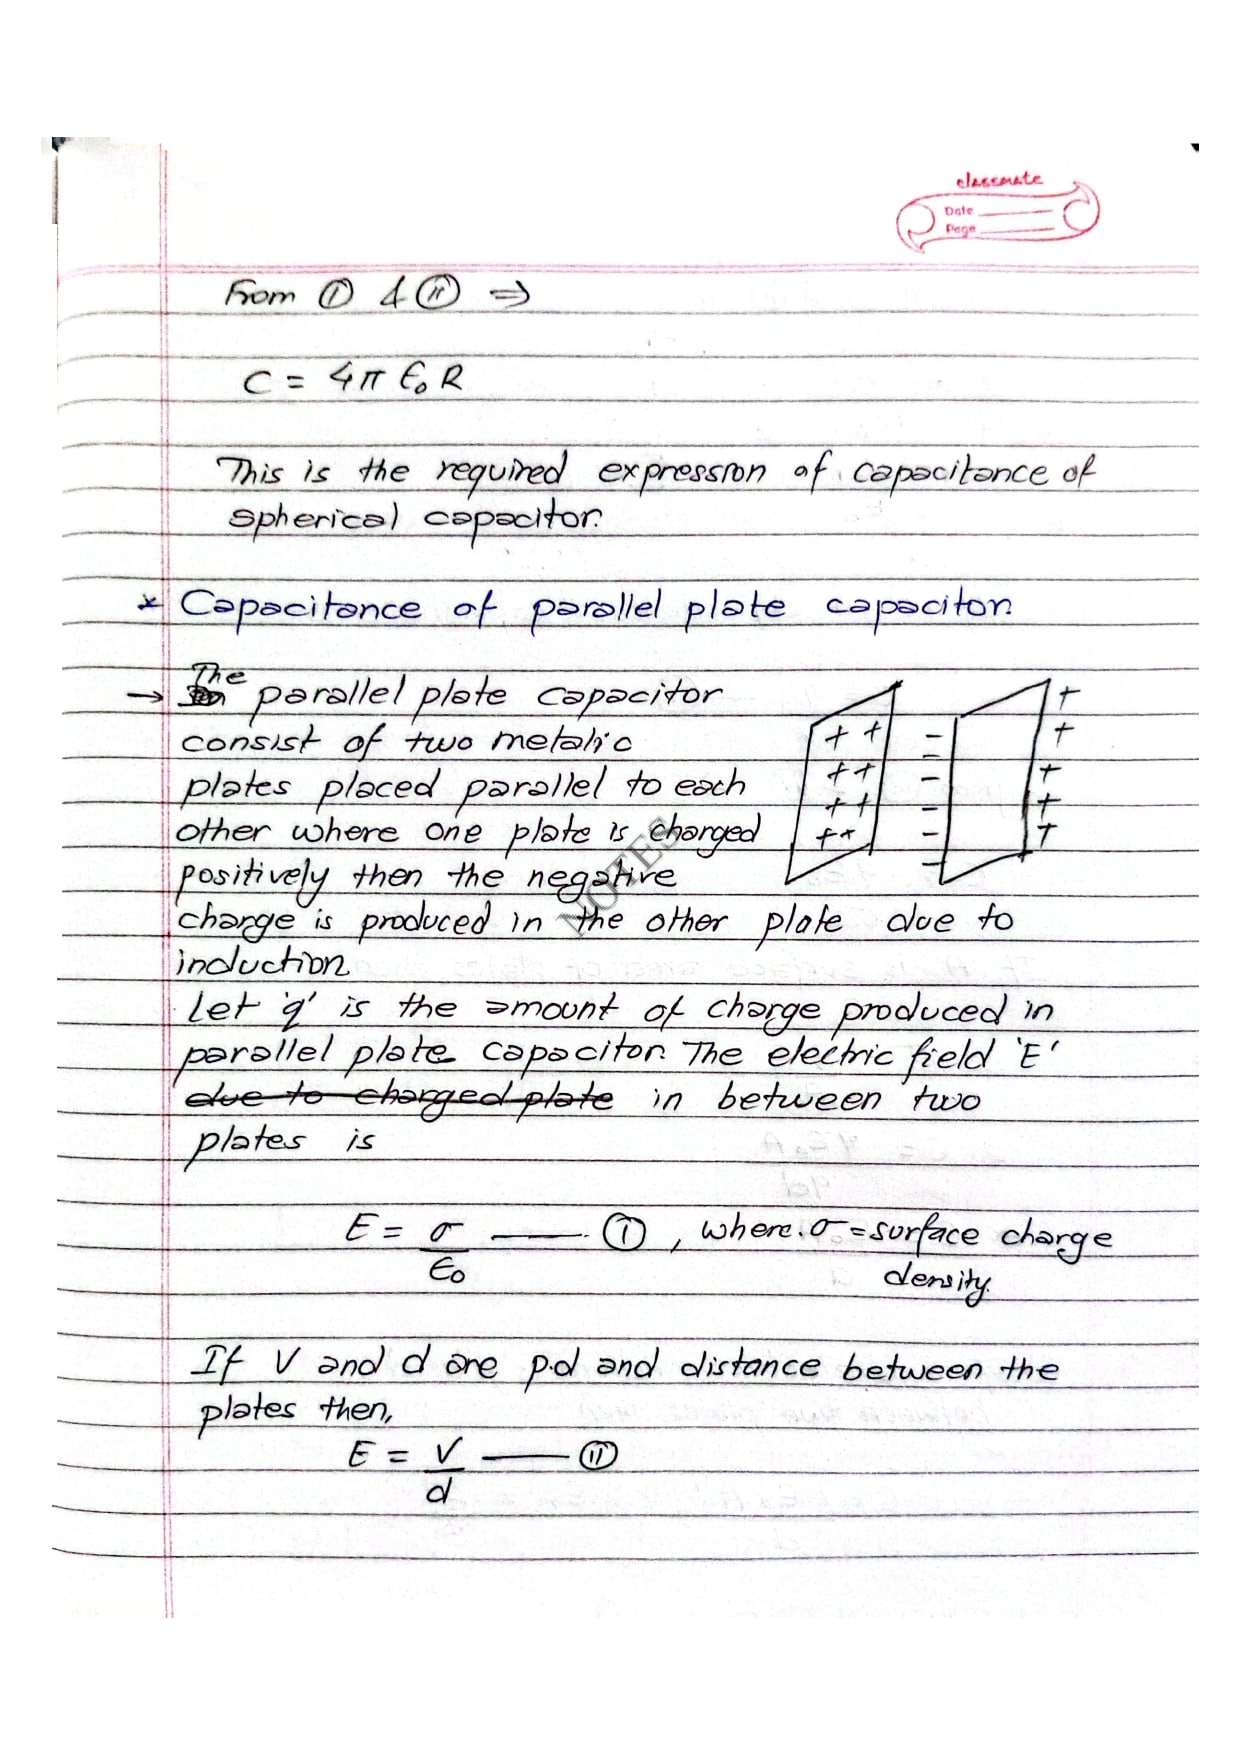 classmate
Date
Page
From Ⓘ & Ⓘⓘ ⇒
C = 4π ϵ₀ R
This is the required expression of capacitance of
spherical capacitor.
* Capacitance of parallel plate capacitor.
The
→ parallel plate capacitor
consist of two metalic
plates placed parallel to each
other where one plate is charged
positively then the negative
charge is produced in the other plate due to
induction.
Let 'q' is the amount of charge produced in
parallel plate capacitor. The electric field 'E'
due to charged plate in between two
plates is
E = σ/ϵ₀ —— Ⓘ , where. σ = surface charge
density.
If V and d are p.d and distance between the
plates then,
E = V/d —— Ⓘⓘ
+ + - +
- +
+ + - +
+ + - +
+ + - +
-
NOTES